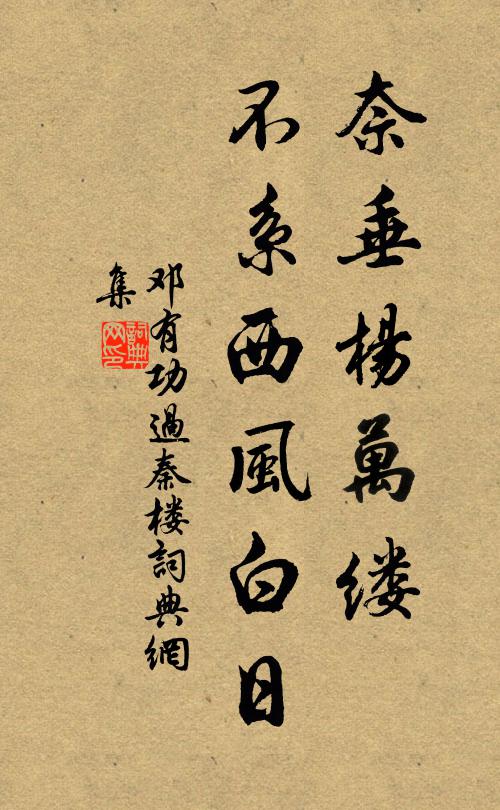 奈垂楊萬缕
不系西風白日
邓有功過秦楼詞典網
集
詞典
网印